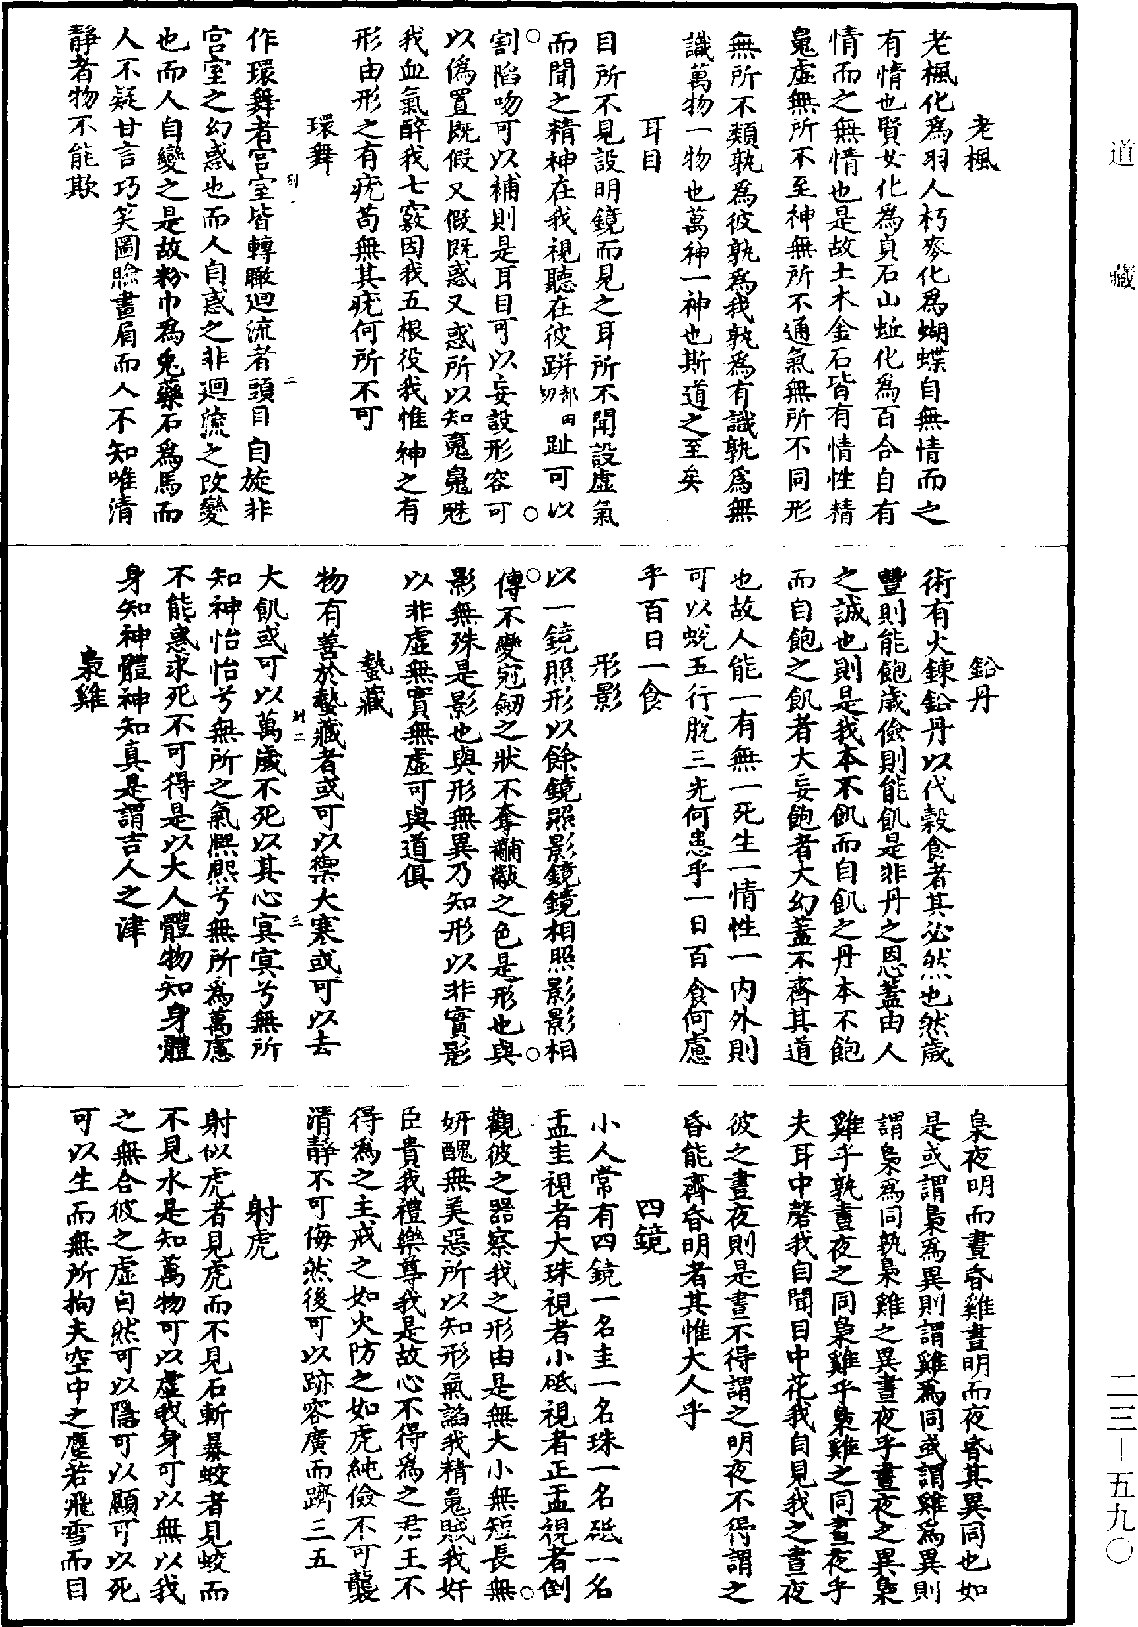 道藏
二三—五九〇
老楓
老楓化爲羽人朽麥化爲蝴蝶自無情而之
有情也賢女化爲貞石山蚯化爲百合自有
情而之無情也是故土木金石皆有情性精
䰟虚無所不至神無所不通氣無所不同形
無所不類孰爲彼孰爲我孰爲有識孰爲無
識萬物一物也萬神一神也斯道之至矣
耳目
目所不見設明鏡而見之耳所不聞設虚氣
而聞之精神在我視聽在彼跰部田切趾可以
割陷吻可以補則是耳目可以妄設形容可
以僞置既假又假既惑又惑所以知䰟䰟魅
我血氣醉我七竅因我五根役我惟神之有
形由形之有疣苟無其疣何所不可
環舞
作環舞者宫室皆轉瞰迴流者頭目自旋非
宫室之幻惑也而人自惑之非迴流之改變
也而人自變之是故粉巾爲兎藥石爲馬而
人不疑甘言巧笑圖臉畫眉而人不知唯清
靜者物不能欺
鉛丹
術有火鍊鉛丹以代穀食者其必然也然歲
豐則能飽歲儉則能飢是非丹之恩蓋由人
之誠也則是我本不飢而自飢之丹本不飽
而自飽之飢者大妄飽者大幻蓋不齊其道
也故人能一有無一死生一情性一内外則
可以蛻五行脱三光何患乎一日百食何慮
乎百日一食
形影
以一鏡照形以餘鏡照影鏡鏡相照影影相
傳不變冠劒之狀不奪黼黻之色是形也與
影無殊是影也與形無異乃知形以非實影
以非虚無實無虚可與道俱
蟄藏
物有善於蟄藏者或可以禦大寒或可以去
大飢或可以萬歲不死以其心冥冥兮無所
知神怡怡兮無所之氣熙熙兮無所爲萬慮
不能惑求死不可得是以大人體物知身體
身知神體神知真是謂吉人之津
梟雞
梟夜明而晝昏雞晝明而夜昏其異同也如
是或謂梟爲異則謂雞爲同或謂雞爲異則
謂梟爲同孰梟雞之異晝夜乎晝夜之異梟
雞乎孰晝夜之同梟雞乎梟雞之同晝夜乎
夫耳中磬我自聞目中花我自見我之晝夜
彼之晝夜則是晝不得謂之明夜不得謂之
昏能齊昏明者其惟大人乎
四鏡
小人常有四鏡一名圭一名珠一名砥一名
盂圭視者大珠視者小砥視者正盂視者倒
觀彼之器察我之形由是無大小無短長無
妍醜無美惡所以知形氣諂我精䰟賊我奸
臣貴我禮樂尊我是故心不得爲之君王不
得爲之主戒之如火防之如虎純儉不可襲
清靜不可侮然後可以跡容廣而躋三五
射虎
射似虎者見虎而不見石斬暴蛟者見蛟而
不見水是知萬物可以虚我身可以無以我
之無合彼之虚自然可以隱可以顯可以死
可以生而無所拘夫空中之塵若飛雪而目